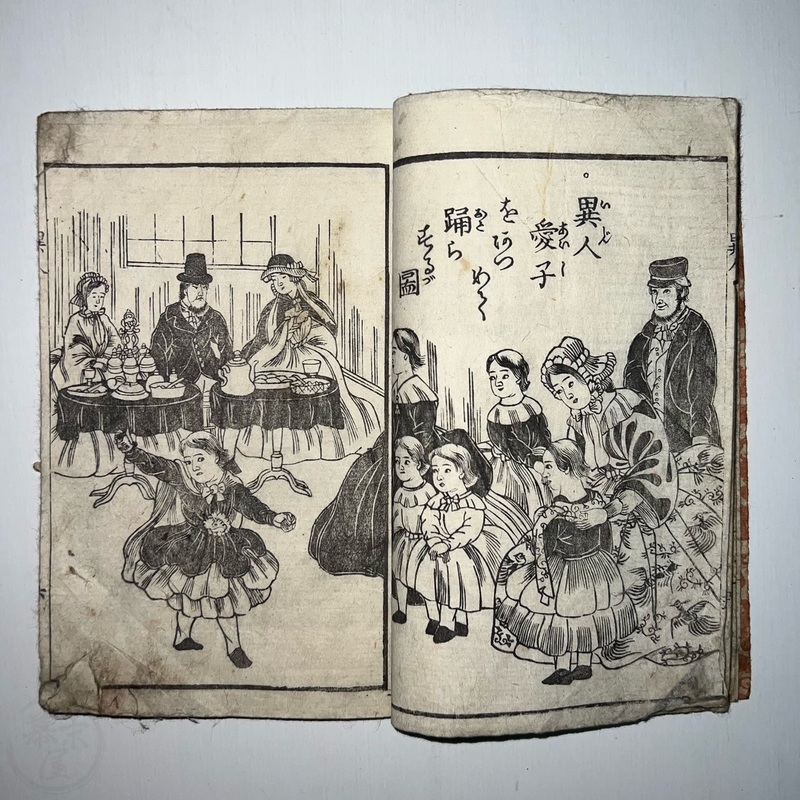 異人
愛子
をあつめて
踊ら
する圖